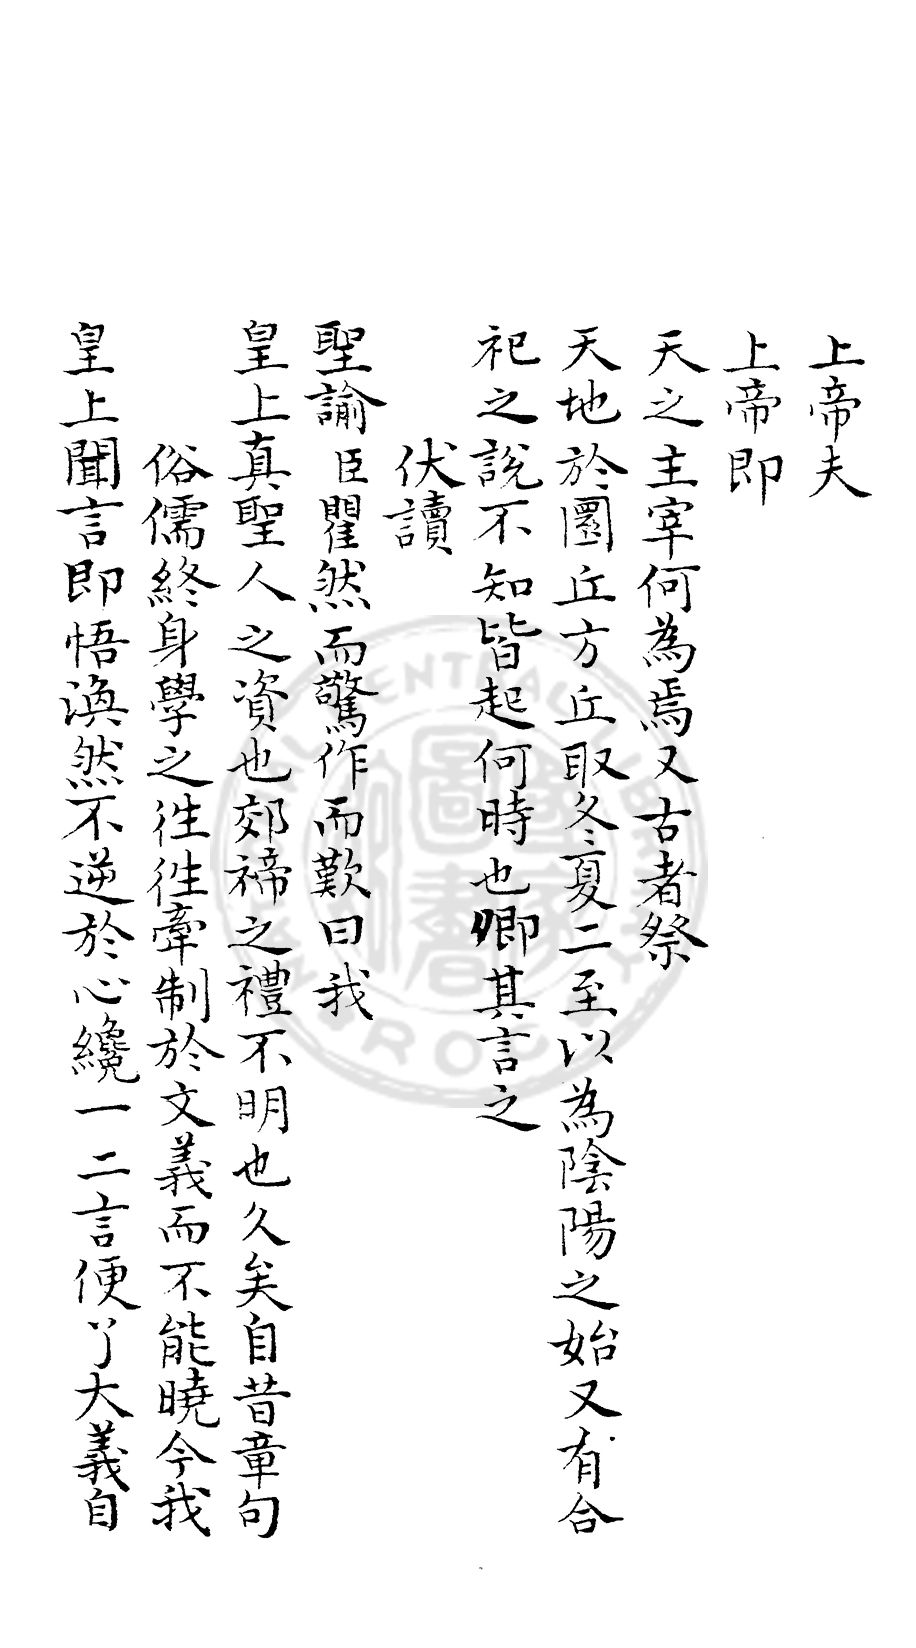 上帝夫
上帝即
天之主宰何為焉又古者祭
天地於圜丘方丘取冬夏二至以為陰陽之始又有合
祀之說不知皆起何時也卿其言之
伏讀
聖諭臣瞿然而驚作而歎曰我
皇上真聖人之資也郊禘之禮不明也久矣自昔章句
俗儒終身學之徃徃牽制於文義而不能曉今我
皇上聞言即悟渙然不逆於心纔一二言便了大義自